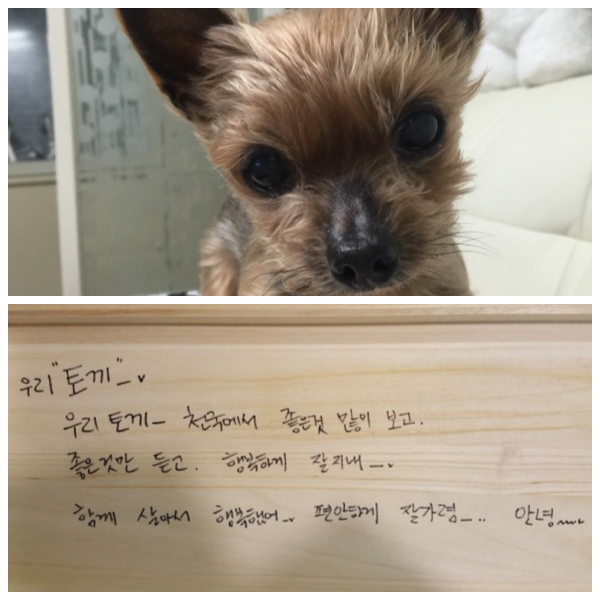 우리 "토끼"_ˇ
우리 토끼_ 천국에서 좋은것 많이 보고.
좋은것만 듣고. 행복하게 잘지내_ˇ
함께 살아서 행복했어_ˇ 편안하게 잘가렴_.. 안녕....